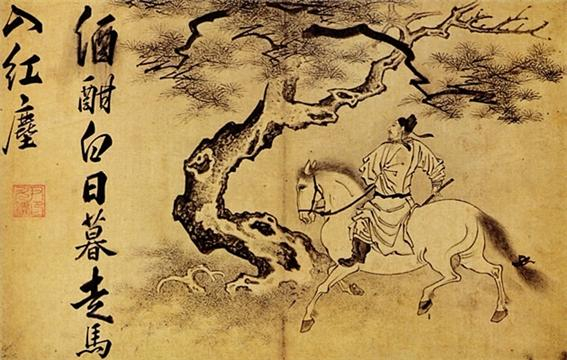 酒酣白日暮走馬
入紅塵